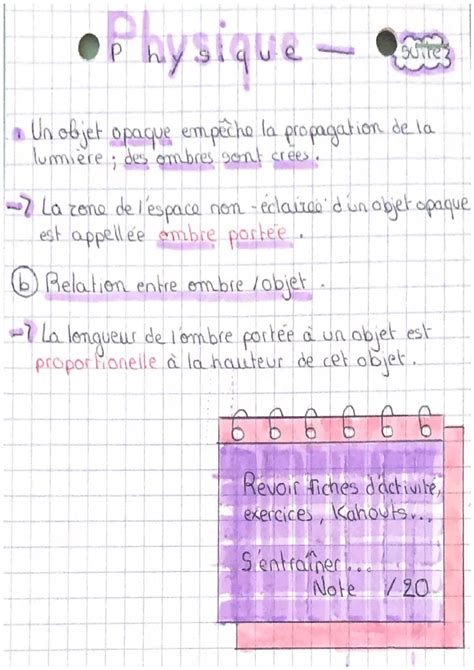 Physique - suite 3
Un objet opaque empêche la propagation de la
lumière ; des ombres sont crées.
→ La zone de l'espace non-éclairée d'un objet opaque
est appellée ombre portée.
b Relation entre ombre / objet.
→ La longueur de l'ombre portée à un objet est
proportionelle à la hauteur de cet objet.
Revoir fiches d'activité,
exercices, Kahouts...
S'entraîner...
Note /20